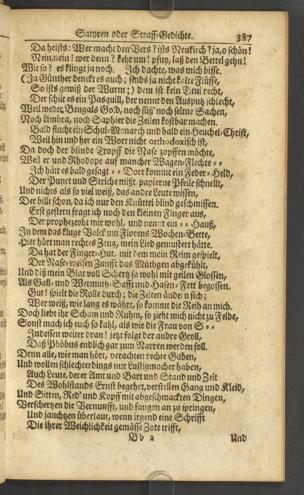 Satyren oder Straff-Gedichte. 387
Da heists: Wer macht den Vers? ists Neukirch? ja, o schön!
Nein, nein! wer denn? kehr um! pfuy, laß den Bettel gehn!
Wie so? es klingt ja noch. Ich dachte, was mich bisse,
(Ja Günther denckt es auch; sinds ja nicht kalte Füsse,
So ists gewiß der Wurm;) dem ist kein Teufel recht,
Der schilt es ein Pasquill, der nennt den Ausputz schlecht,
Weil weder Bengals Gold, noch sonst noch seltne Sachen,
Noch Ambra, noch Saphier die Zeilen kostbar machen,
Bald flucht ein Schul-Monarch und bald ein Heuchel-Christ,
Weil hin und her ein Wort nicht orthodoxisch ist,
Da doch der blinde Tropff die Nase zopffen möchte,
Weil er und Rhodope auf mancher Wagen-Flechte - -
Ich hätt es bald gesagt - - Dort kommt ein Feder-Held,
Der Punct und Strich mißt, papierne Pfeile schnellt,
Und nichts als so viel weiß, das andre Leute wissen,
Der bills schon, da ich nur den Knüttel blind geschmissen.
Erst gestern fragt ich noch den kleinen Finger aus,
Der prophezeyht mir wohl, und nennt ein - - Hauß,
In dem das kluge Volck um Florens Wochen-Bette,
Hier hört man rechtes Zeug, mein Lied gemustert hätte.
Da hat der Finger-Hut, mit dem mein Reim gespielt,
Der Nase-weisen Zunfft das Müthgen abgekühlt,
Und diß mein Blat voll Schertz so wohl mit geilen Glossen,
Als Gall- und Wermuth-Safft und Hasen-Fett begossen.
Gut! spielt die Rolle durch; die Zeiten ändern sich;
Wer weiß, wie lang es währt, so kommt die Reih an mich.
Doch liebt ihr Scham und Ruhm, so zieht mich nicht zu Felde,
Sonst mach ich euch so kahl, als wie die Frau von S - -
Indessen weiter dran! jetzt folget der andre Groll,
Daß Phöbus endlich gar zum Narren werden soll.
Denn alle, wie man hört, verachten rechte Gaben,
Und wollen schlechterdings nur Lustigmacher haben,
Auch Leute, derer Amt und Bart und Stand und Zeit
Des Wohlstands Ernst begehrt, verstellen Gang und Kleid,
Und Sitten, Red' und Kopff mit abgeschmackten Dingen,
Verschertzen die Vernunfft, und fangen an zu springen,
Und jauchtzen überlaut, wenn irgend eine Schrifft
Die ihrer Weichlichkeit gemässe Zote trifft,
Bb 2 Und